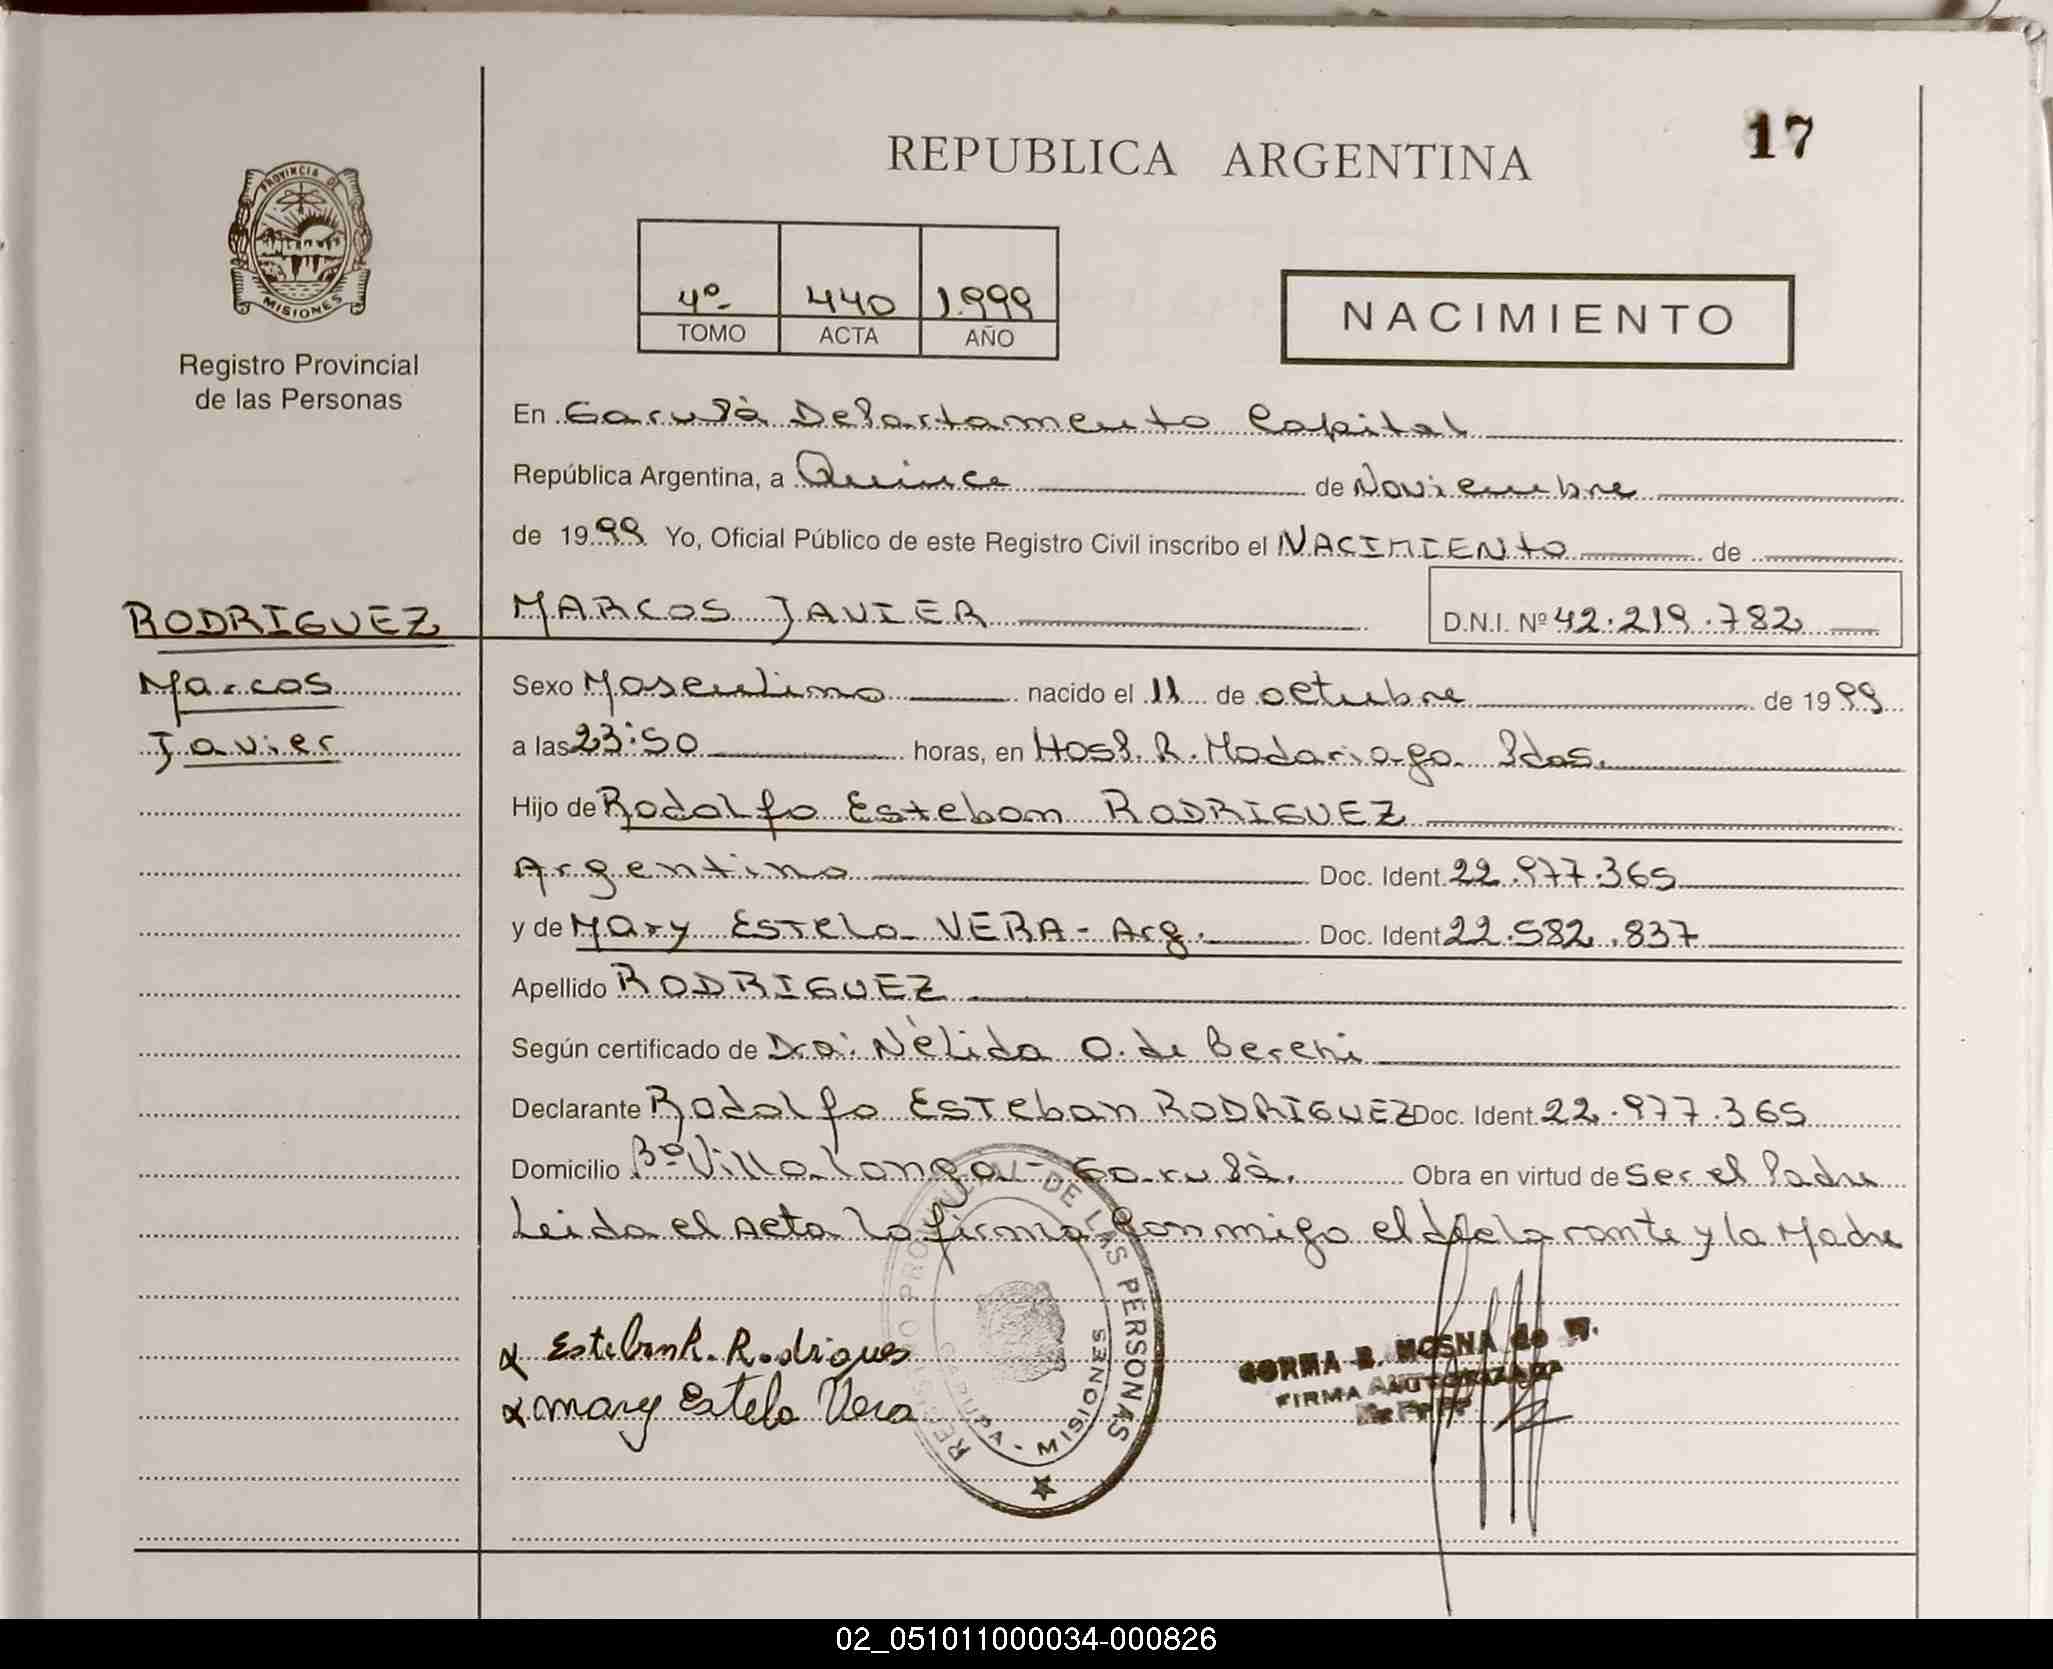 17
REPUBLICA ARGENTINA
PROVINCIA DE
MISIONES
Registro Provincial
de las Personas
4º 440 1.999
TOMO ACTA AÑO
NACIMIENTO
En Garupà Departamento Capital
República Argentina, a Quince de Noviembre
de 1999 Yo, Oficial Público de este Registro Civil inscribo el NACIMIENTO de
RODRIGUEZ
Marcos
Javier
MARCOS JAVIER D.N.I. Nº 42.219.782
Sexo Masculino nacido el 11 de octubre de 1999
a las 23:50 horas, en Hosp. R. Madariaga Pdas.
Hijo de Rodolfo Esteban RODRIGUEZ
Argentino Doc. Ident. 22.977.365
y de Mary Estela VERA - Arg. Doc. Ident 22.582.837
Apellido RODRIGUEZ
Según certificado de Dra: Nèlida O. de
Declarante Rodolfo Esteban RODRIGUEZ Doc. Ident. 22.977.365
Domicilio Bº Villa longa - Garupà. Obra en virtud de ser el Padre
Leida el Acta la firma conmigo el declarante y la Madre
REGISTRO PROVINCIAL DE LAS PERSONAS
GARUPA - MISIONES
Esteban R. Rodrigues
Mary Estela Vera
B. MOSNA de
FIRMA AUTORIZADA
02_051011000034-000826